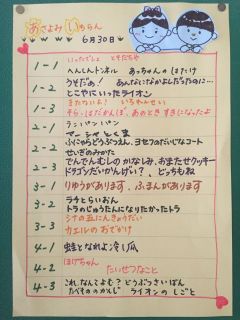 あさよみ いちらん
6月30日
1-1
へんしんトンネル あっちゃんのはたけ
1-2
うそだあ！ あんなになかよしだったのに…
とこやにいったライオン
1-3
またもりへ！ いろわんせい
そら・はだかんぼ、あのときすきになったよ
2-1
ランパンパン
まーちゃとくま
2-2
ふにゃらどうぶつえん、ヨセフのだいじなコート
せいぎのみかた
2-3
でんでんむしのかなしみ、おまたせクッキー
ドラゴンだいかいけつ？、どっちもね
3-1
りゆうがあります、ふまんがあります
3-2
ラチとらいおん
トラのじゅうたんになりたかったトラ
3-3
シナの五にんきょうだい
カエルのおでかけ
4-1
蛙となれよ冷し瓜
4-2
ぼけちゃん
たいせつなこと
4-3
これ、なんてよむ？ どうぶつさいばん
たべもののかんじ ライオンのしごと